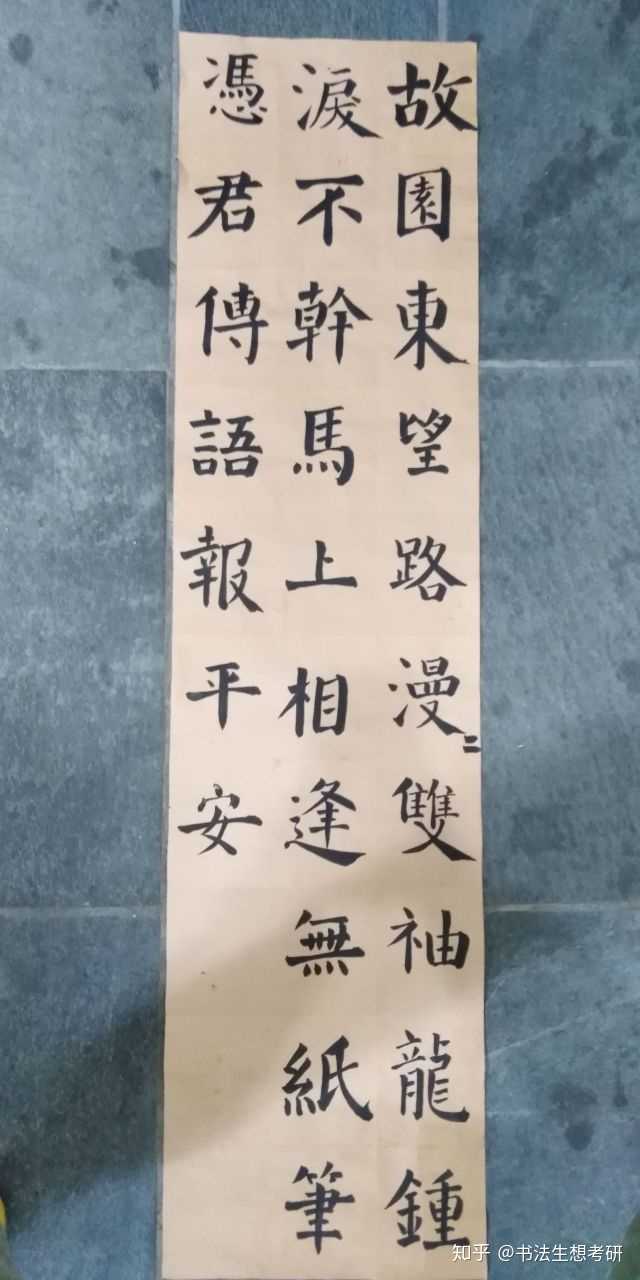 故園東望路漫〻雙袖龍鍾
淚不幹馬上相逢無紙筆
憑君傳語報平安
知乎 @书法生想考研